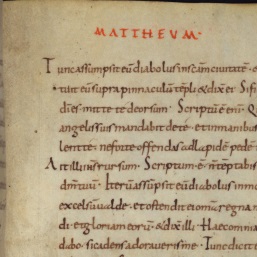 MATTHEUM·
Tunc assumpsit eū diabolus in scām civitatē· &
tuit eū supra pinnaculū tēpli & dix̄ ei· Si fi
dī es mitte te deorsum· Scriptū ē enī· Q
angelis suis mandabit de te· & in manibus
lent te· ne forte offendas ad lapidē pedē
Ait illi ihs rursum· Scriptum ē· n̄ tēptabis
dn̄m tuū· Iterū assūpsit eū diabolus in mo
excelsū valde· & ostendit ei omīa regna m
di· & gloriam eorū· & dix̄ illi· Haec omnia
dabo· si cadens adoraveris me· Tunc dicit e